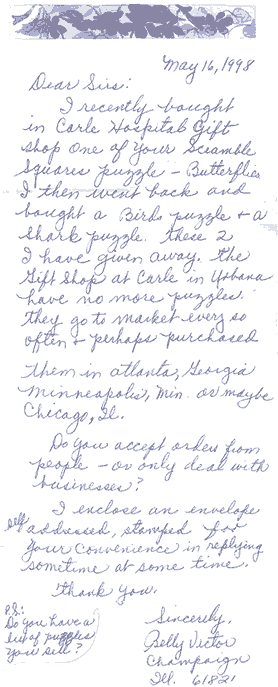 May 16, 1998
Dear Sirs:
I recently bought
in Carle Hospital Gift
shop one of your Scramble
Squares puzzle – Butterflies
I then went back and
bought a Birds puzzle + a
Shark puzzle. These 2
I have given away. The
Gift Shop at Carle in Urbana
have no more puzzles.
They go to market every so
often + perhaps purchased
them in Atlanta, Georgia
Minneapolis, Min. or maybe
Chicago, Il.
Do you accept orders from
people – or only deal with
businesses?
I enclose an envelope
self addressed, stamped for
your convenience in replying
sometime at some time.
Thank you.
Sincerely,
Betty Victor
Champaign
Ill. 61821
P.S.:
Do you have a
list of puzzles
you sell?